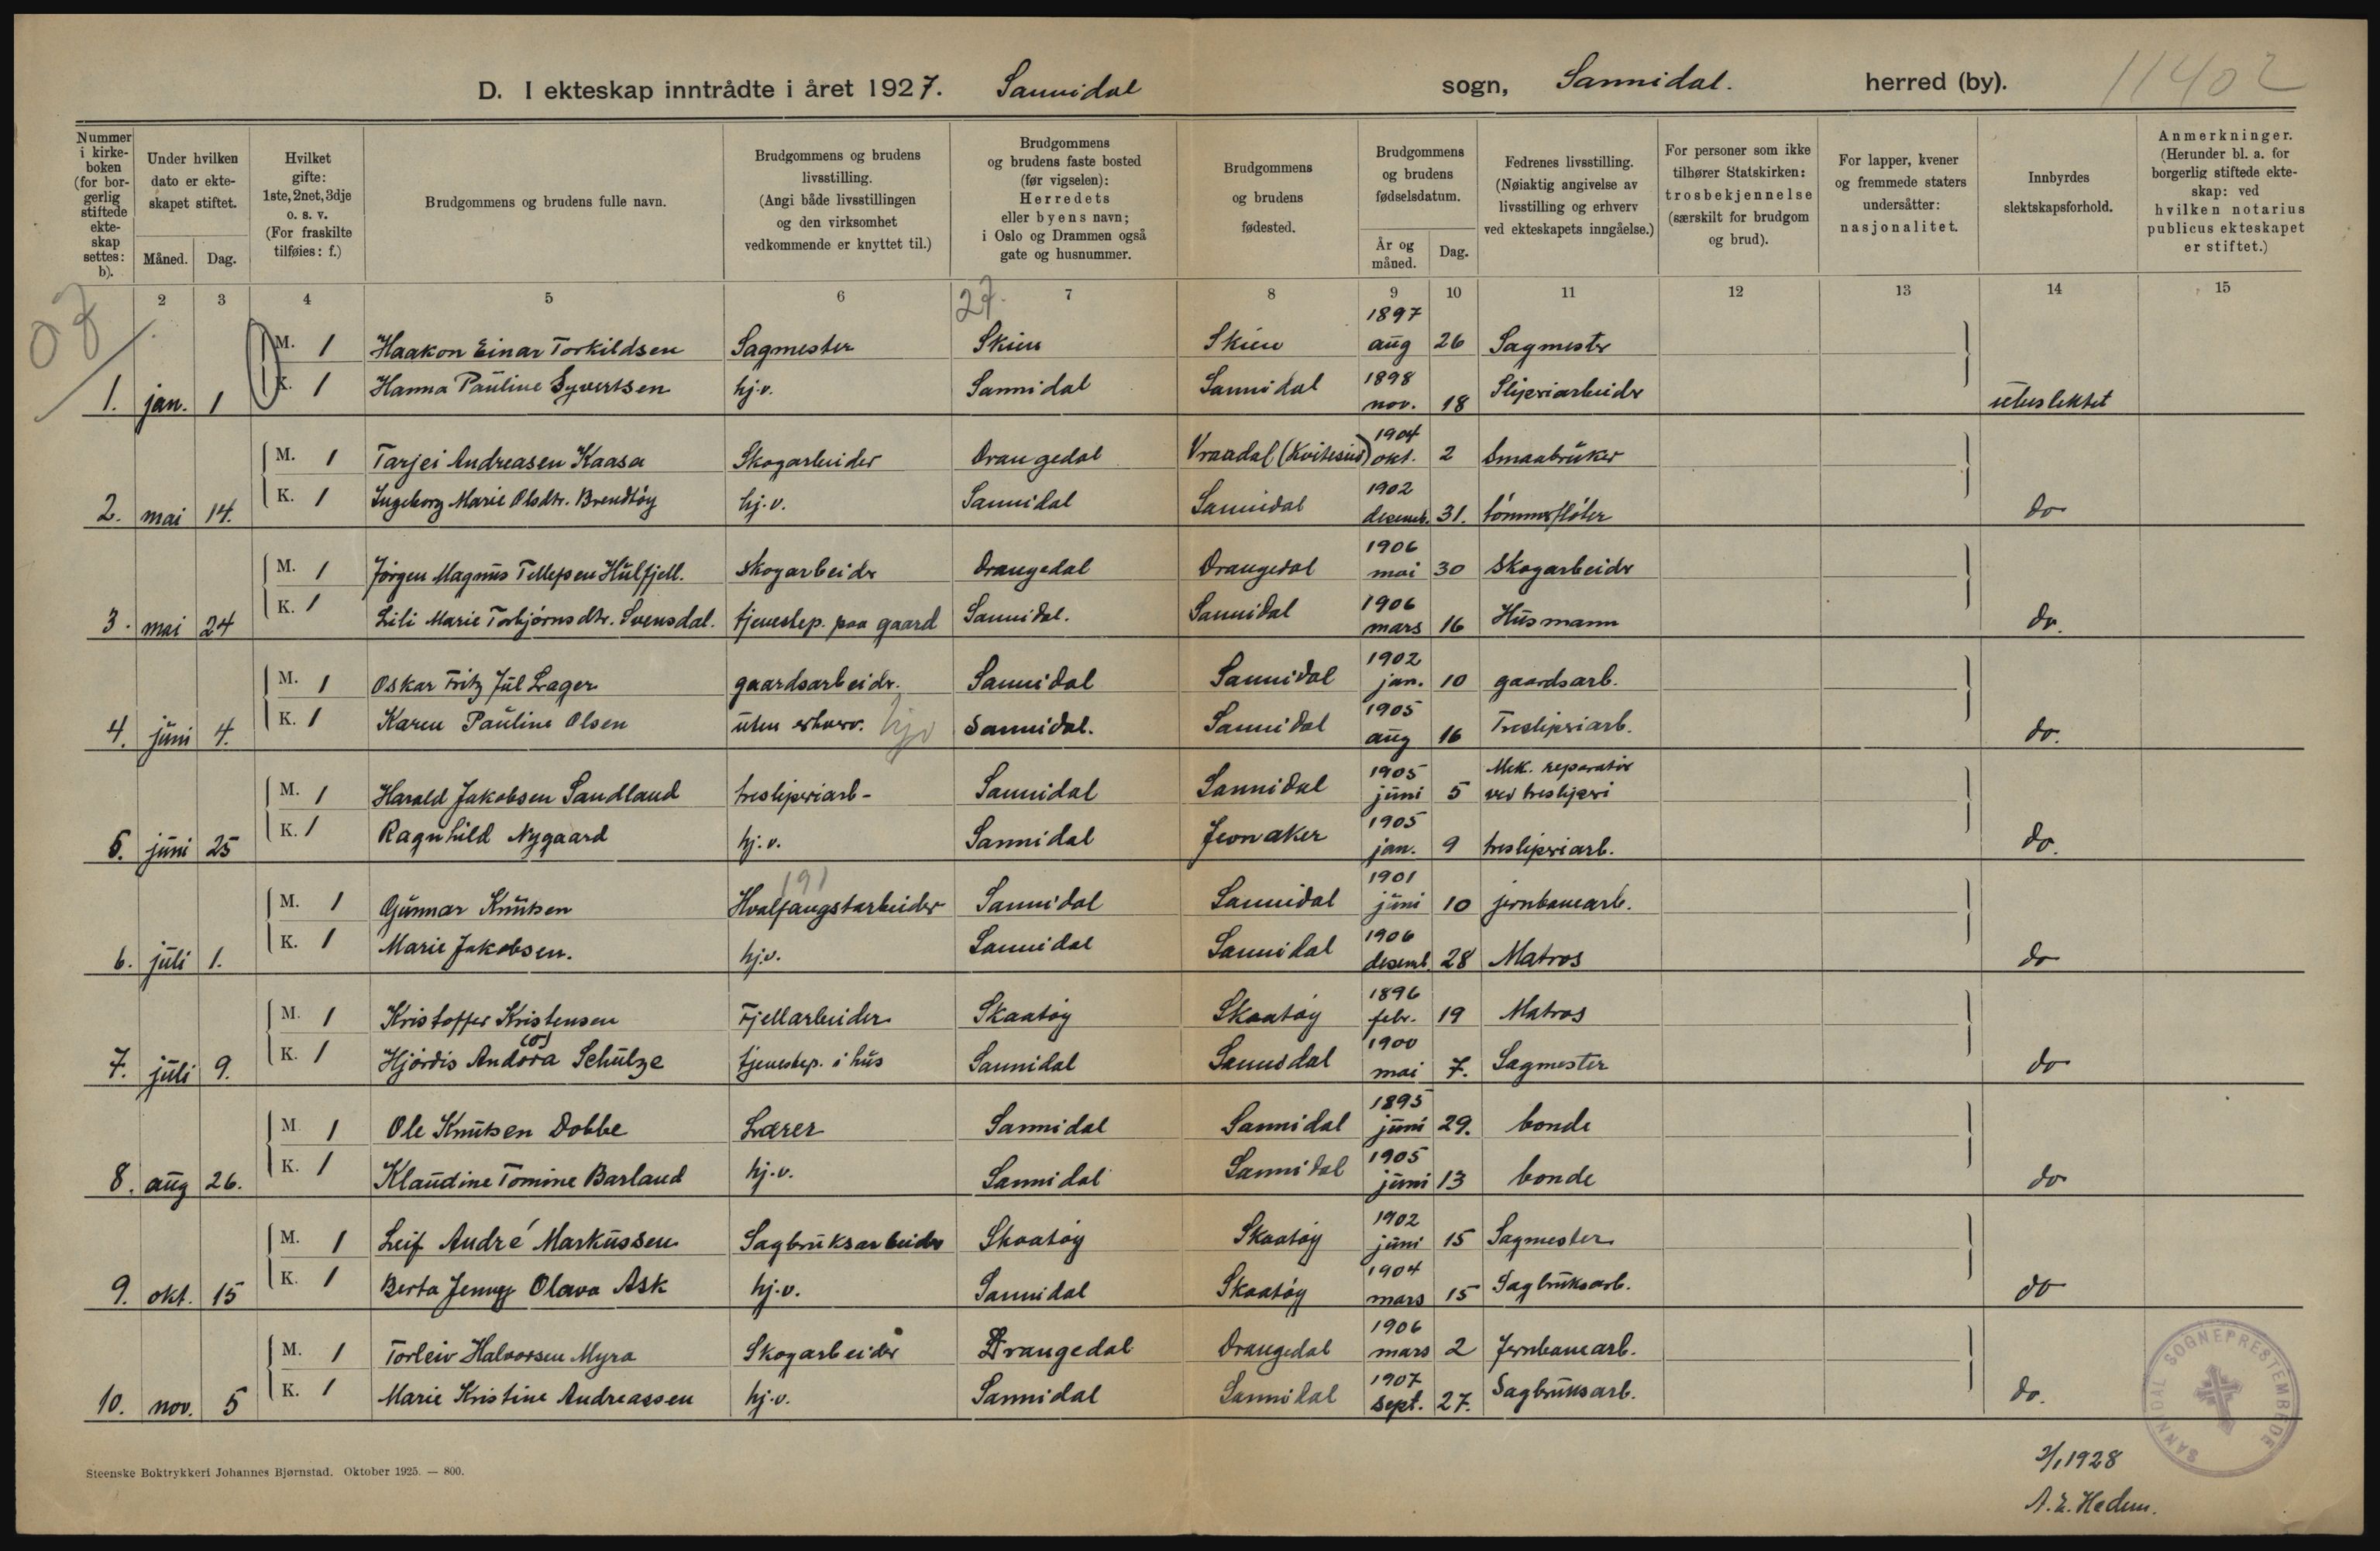 D. I ekteskap inntrådte i året 1927. Sannidal sogn, Sannidal. herred (by). 11402
Nummer i kirke-boken (for bor-gerlig stiftede ekte-skap settes: b).
Under hvilken dato er ekte-skapet stiftet. Måned. Dag.
Hvilket gifte: 1ste, 2net, 3dje o. s. v. (For fraskilte tilføies: f.)
Brudgommens og brudens fulle navn.
Brudgommens og brudens livsstilling. (Angi både livsstillingen og den virksomhet vedkommende er knyttet til.)
Brudgommens og brudens faste bosted (før vigselen): Herredets eller byens navn; i Oslo og Drammen også gate og husnummer.
Brudgommens og brudens fødested.
Brudgommens og brudens fødselsdatum. År og måned. Dag.
Fedrenes livsstilling. (Nøiaktig angivelse av livsstilling og erhverv ved ekteskapets inngåelse.)
For personer som ikke tilhører Statskirken: trosbekjennelse (særskilt for brudgom og brud).
For lapper, kvener og fremmede staters undersåtter: nasjonalitet.
Innbyrdes slektskapsforhold.
Anmerkninger. (Herunder bl. a. for borgerlig stiftede ekte-skap: ved hvilken notarius publicus ekteskapet er stiftet.)
2 3 4 5 6 7 8 9 10 11 12 13 14 15
27.
M. 1 Haakon Einar Torkildsen Sagmester Skien Skien 1897 aug 26 Sagmester
1. jan. 1 K. 1 Hanna Pauline Syvertsen hj.v. Sannidal Sannidal 1898 nov. 18 Sliperiarbeider ubeslektet
M. 1 Tarjei Andreasen Kaasa Skogarbeider Drangedal Vraadal (Kviteseid) 1904 okt. 2 Smaabruker
2. mai 14. K. 1 Ingeborg Marie Olsdtr. Brendtøy hj.v. Sannidal Sannidal 1902 desemb. 31. tømmerfløter do
M. 1 Jørgen Magnus Tellefsen Hulfjell. Skogarbeider Drangedal Drangedal 1906 mai 30 Skogarbeider
3. mai 24 K. 1 Lili Marie Torbjørnsdtr. Svensdal. tjenestep. paa gaard Sannidal. Sannidal 1906 mars 16 Husmann do.
M. 1 Oskar Fritz Jul Lager gaardsarbeider. Sannidal Sannidal 1902 jan. 10 gaardsarb.
4. juni 4. K. 1 Karen Pauline Olsen uten erhverv. hjv Sannidal. Sannidal 1905 aug 16 Tresliperiarb. do.
M. 1 Harald Jakobsen Sandland tresliperiarb- Sannidal Sannidal 1905 juni 5 Mek. reparatør ved tresliperi
5. juni 25 K. 1 Ragnhild Nygaard hj.v. Sannidal Jevnaker 1905 jan. 9 tresliperiarb. do.
191
M. 1 Gunnar Knutsen Hvalfangstarbeider Sannidal Sannidal 1901 juni 10 jernbanearb.
6. juli 1. K. 1 Marie Jakobsen. hj.v. Sannidal Sannidal 1906 desemb. 28 Matros do
M. 1 Kristoffer Kristensen Fjellarbeider Skaatøy Skaatøy 1896 febr. 19 Matros
7. juli 9. K. 1 Hjørdis Andora Schulze tjenestep. i hus Sannidal Sannidal 1900 mai 7. Sagmester do
M. 1 Ole Knutsen Dobbe Lærer Sannidal Sannidal 1895 juni 29. bonde
8. aug 26. K. 1 Klaudine Tomine Barland hj.v. Sannidal Sannidal 1905 juni 13 bonde do
M. 1 Leif André Markussen Sagbruksarbeider Skaatøy Skaatøy 1902 juni 15 Sagmester
9. okt. 15 K. 1 Berta Jenny Olava Ask hj.v. Sannidal Skaatøy 1904 mars 15 Sagbruksarb. do
M. 1 Torleiv Halvorsen Myra Skogarbeider Drangedal Drangedal 1906 mars 2 Jernbanearb.
10. nov. 5 K. 1 Marie Kristine Andreassen hj.v. Sannidal Sannidal 1907 sept. 27. Sagbruksarb. do.
SANNIDAL SOGNEPRESTEMBEDE
Steenske Boktrykkeri Johannes Bjørnstad. Oktober 1925. — 800.
2/1 1928
A. E. Hedem.